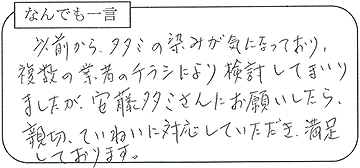 なんでも一言
以前から、タタミの染みが気になっており、
複数の業者のチラシにより検討してまいり
ましたが、安藤タタミさんにお願いしたら、
親切、ていねいに対応していただき、満足
しております。